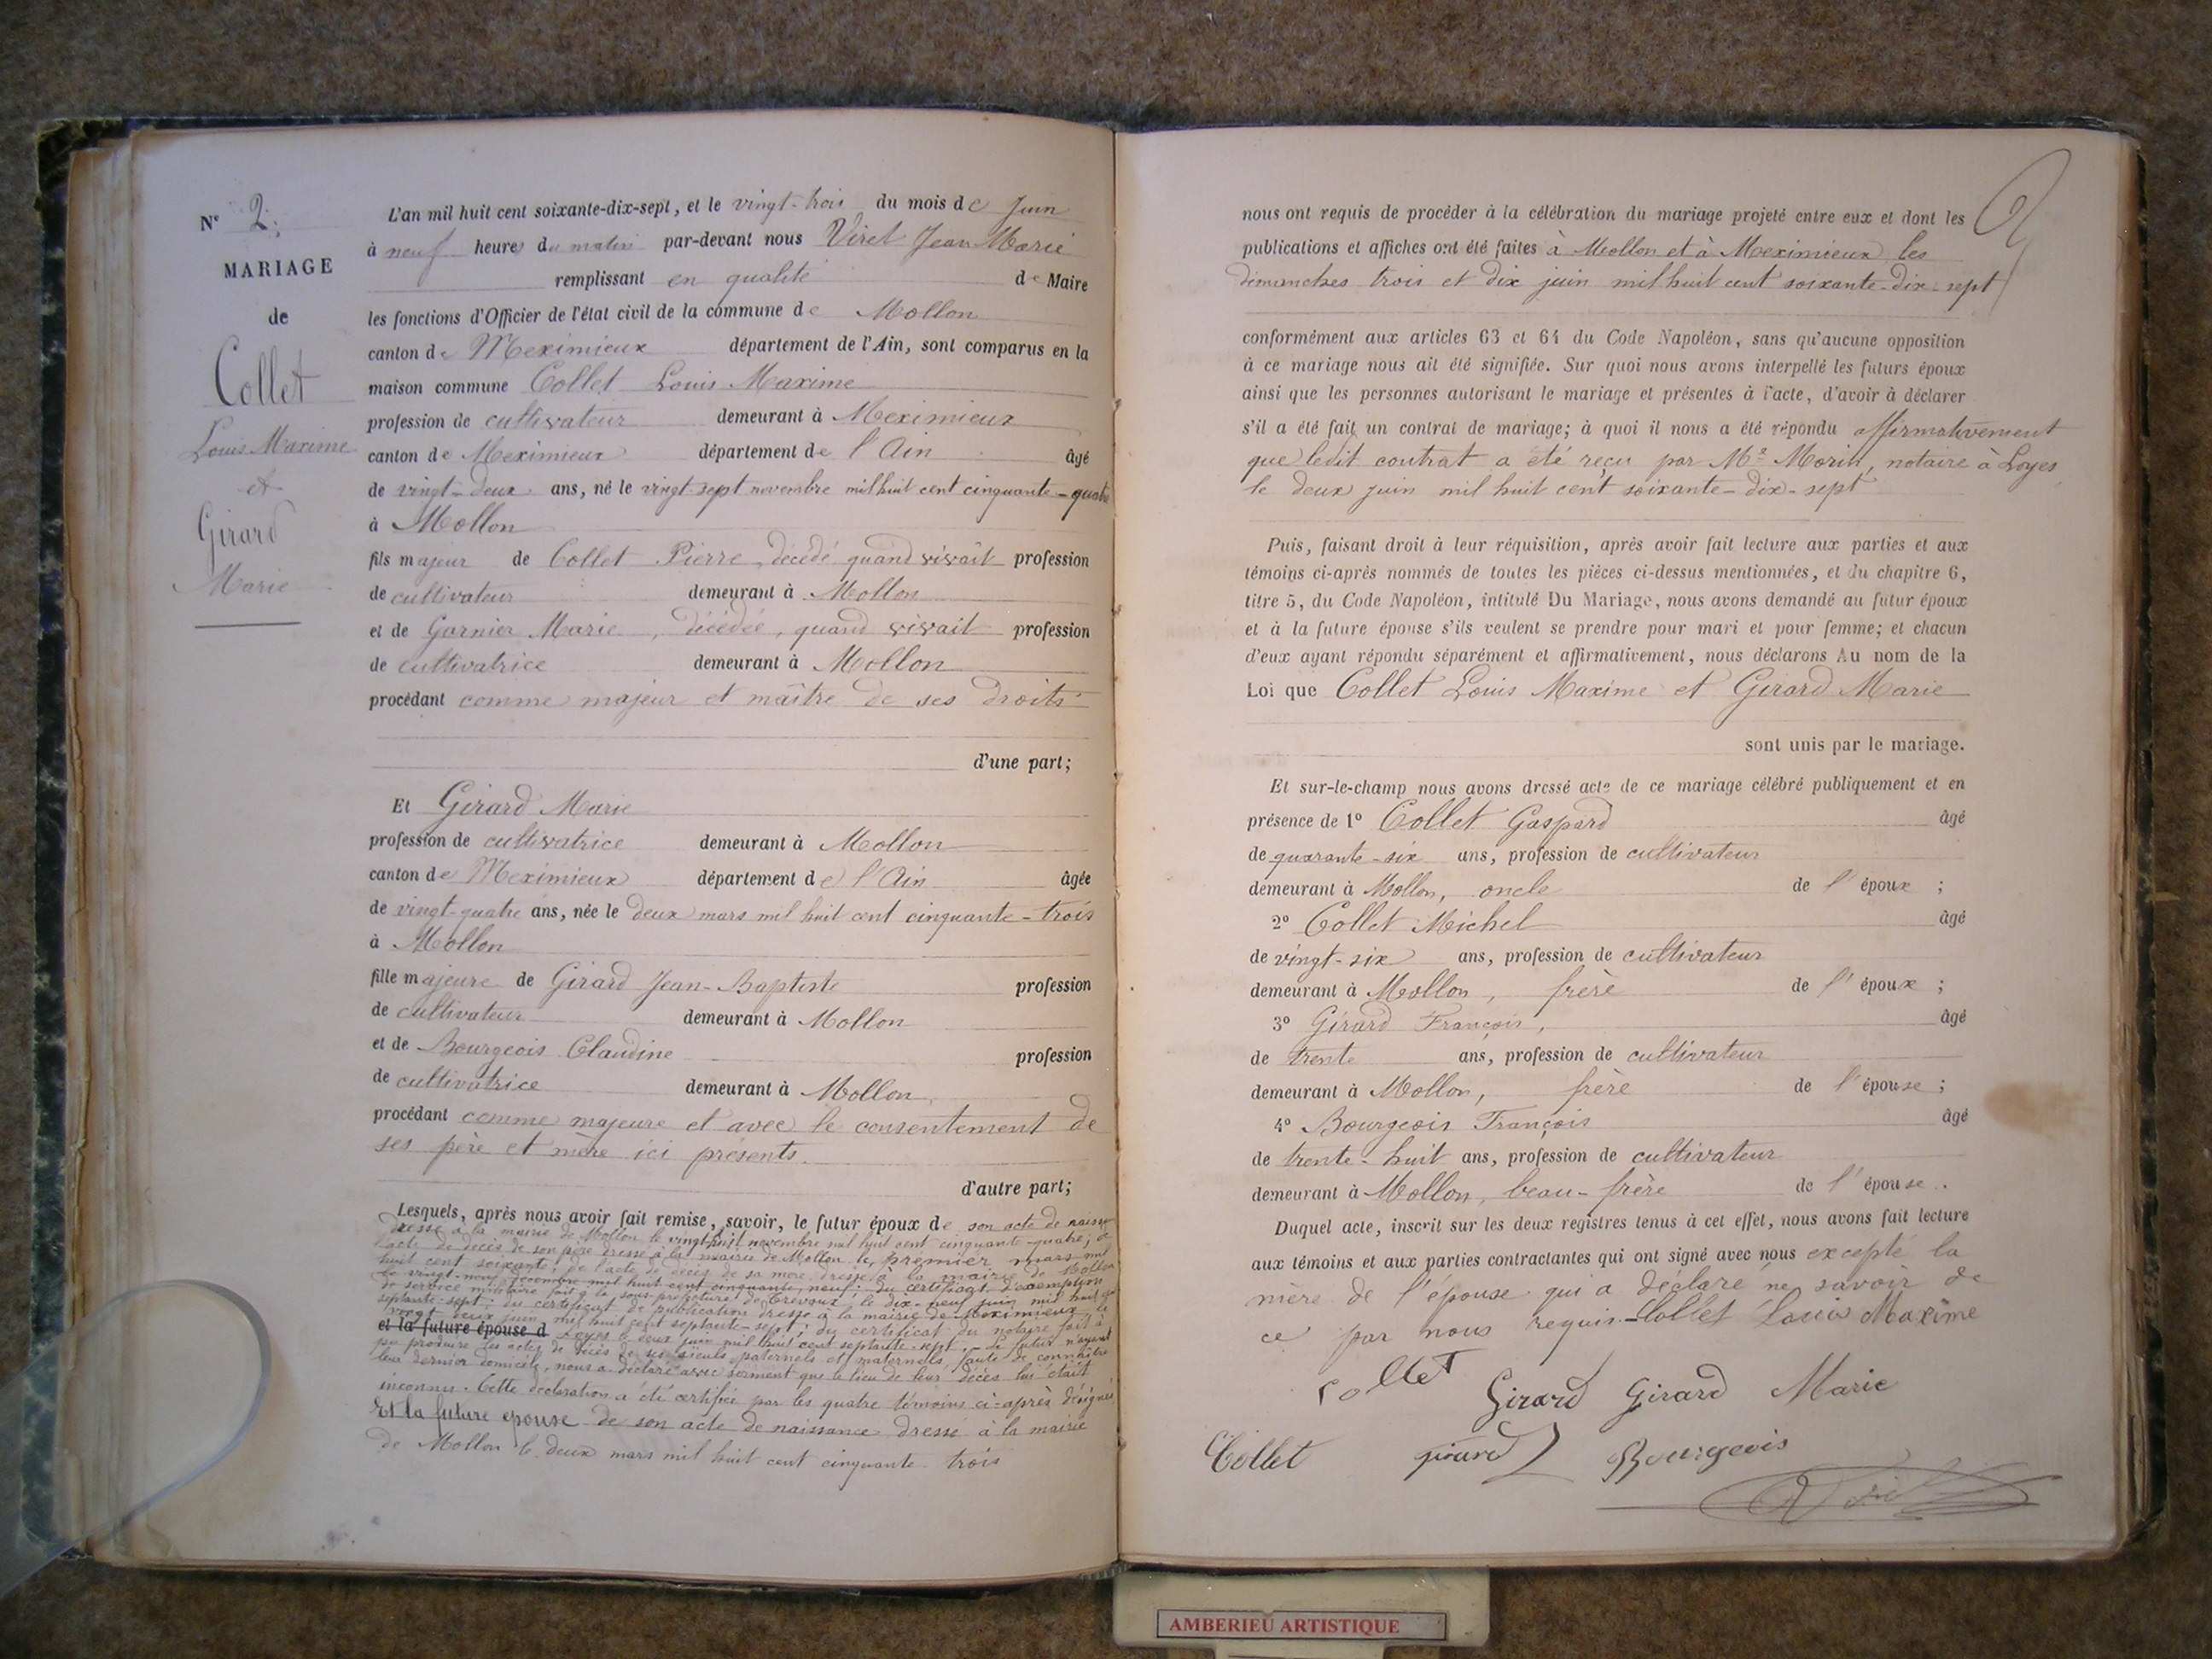 N° 2;
MARIAGE
de
Collet
Louis Maxime
et
Girard
Marie
L'an mil huit cent soixante-dix-sept, et le vingt-trois du mois de Juin
à neuf heures du matin par-devant nous Viret Jean Marie
remplissant en qualité de Maire
les fonctions d'Officier de l'état civil de la commune de Mollon
canton de Meximieux département de l'Ain, sont comparus en la
maison commune Collet Louis Maxime
profession de cultivateur demeurant à Meximieux
canton de Meximieux département de l'Ain âgé
de vingt-deux ans, né le vingt-sept novembre mil huit cent cinquante-quatre
à Mollon
fils majeur de Collet Pierre, décédé quand vivait profession
de cultivateur demeurant à Mollon
et de Garnier Marie, décédée, quand vivait profession
de cultivatrice demeurant à Mollon
procédant comme majeur et maître de ses droits
d'une part;
Et Girard Marie
profession de cultivatrice demeurant à Mollon
canton de Meximieux département de l'Ain âgée
de vingt-quatre ans, née le deux mars mil huit cent cinquante-trois
à Mollon
fille majeure de Girard Jean-Baptiste profession
de cultivateur demeurant à Mollon
et de Bourgeois Claudine profession
de cultivatrice demeurant à Mollon
procédant comme majeure et avec le consentement de
ses père et mère ici présents.
d'autre part;
Lesquels, après nous avoir fait remise, savoir, le futur époux de son acte de naissance
dressé à la mairie de Mollon le vingt-huit novembre mil huit cent cinquante-quatre; de
l'acte de décès de son père dressé à la mairie de Mollon le premier mars mil
huit cent soixante; de l'acte de décès de sa mère dressé à la mairie de Mollon
le vingt-neuf décembre mil huit cent cinquante neuf; du certificat d'exemption
de service militaire fait à la sous-préfecture de Trévoux le dix-neuf juin mil huit cent
septante-sept; du certificat de publication dressé à la mairie de Meximieux le
vingt deux juin mil huit cent septante-sept; du certificat du notaire fait à
et la future épouse d Loyes le deux juin mil huit cent septante-sept. Le futur n'ayant
pu produire les actes de décès de ses aïeuls paternels et maternels, faute de connaître
leur dernier domicile, nous a déclaré avec serment que le lieu de leur décès lui était
inconnu. Cette déclaration a été certifiée par les quatre témoins ci-après désignés
Et la future épouse de son acte de naissance dressé à la mairie
de Mollon le deux mars mil huit cent cinquante trois
nous ont requis de procéder à la célébration du mariage projeté entre eux et dont les
publications et affiches ont été faites à Mollon et à Meximieux les
dimanches trois et dix juin mil huit cent soixante-dix-sept
conformément aux articles 63 et 64 du Code Napoléon, sans qu'aucune opposition
à ce mariage nous ait été signifiée. Sur quoi nous avons interpellé les futurs époux
ainsi que les personnes autorisant le mariage et présentes à l'acte, d'avoir à déclarer
s'il a été fait un contrat de mariage; à quoi il nous a été répondu affirmativement
que ledit contrat a été reçu par Me Morin, notaire à Loyes
le deux juin mil huit cent soixante-dix-sept
Puis, faisant droit à leur réquisition, après avoir fait lecture aux parties et aux
témoins ci-après nommés de toutes les pièces ci-dessus mentionnées, et du chapitre 6,
titre 5, du Code Napoléon, intitulé Du Mariage, nous avons demandé au futur époux
et à la future épouse s'ils veulent se prendre pour mari et pour femme; et chacun
d'eux ayant répondu séparément et affirmativement, nous déclarons Au nom de la
Loi que Collet Louis Maxime et Girard Marie
sont unis par le mariage.
Et sur-le-champ nous avons dressé acte de ce mariage célébré publiquement et en
présence de 1° Collet Gaspard âgé
de quarante-six ans, profession de cultivateur
demeurant à Mollon, oncle de l'époux ;
2° Collet Michel âgé
de vingt-six ans, profession de cultivateur
demeurant à Mollon, frère de l'époux ;
3° Girard François, âgé
de trente ans, profession de cultivateur
demeurant à Mollon, frère de l'épouse ;
4° Bourgeois François âgé
de trente-huit ans, profession de cultivateur
demeurant à Mollon, beau-frère de l'épouse.
Duquel acte, inscrit sur les deux registres tenus à cet effet, nous avons fait lecture
aux témoins et aux parties contractantes qui ont signé avec nous excepté la
mère de l'épouse qui a déclaré ne savoir de
ce par nous requis. Collet Louis Maxime
Collet Girard Girard Marie
Collet girard Bourgeois
Viret
AMBERIEU ARTISTIQUE